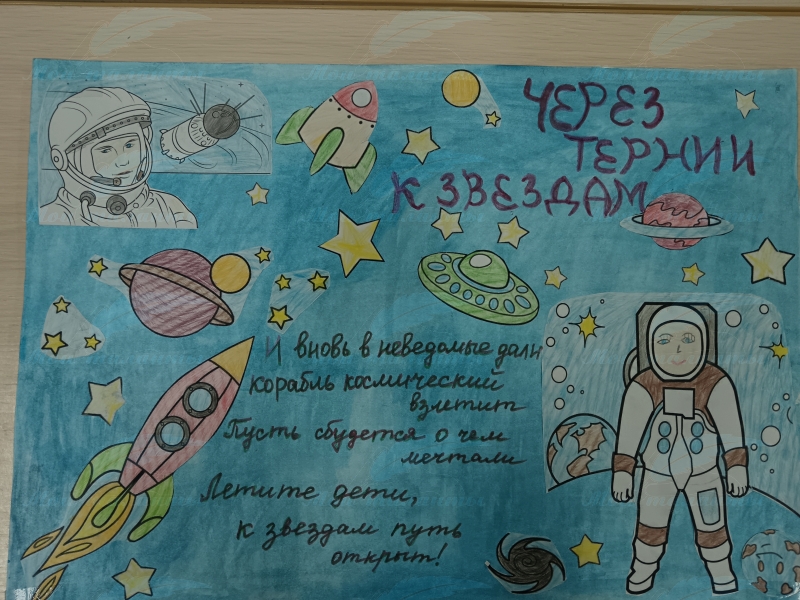 ЧЕРЕЗ
ТЕРНИИ
К ЗВЕЗДАМ
И вновь в неведомые дали
корабль космический
взлетит
Пусть сбудется о чем
мечтали
Летите дети,
к звездам путь
открыт!